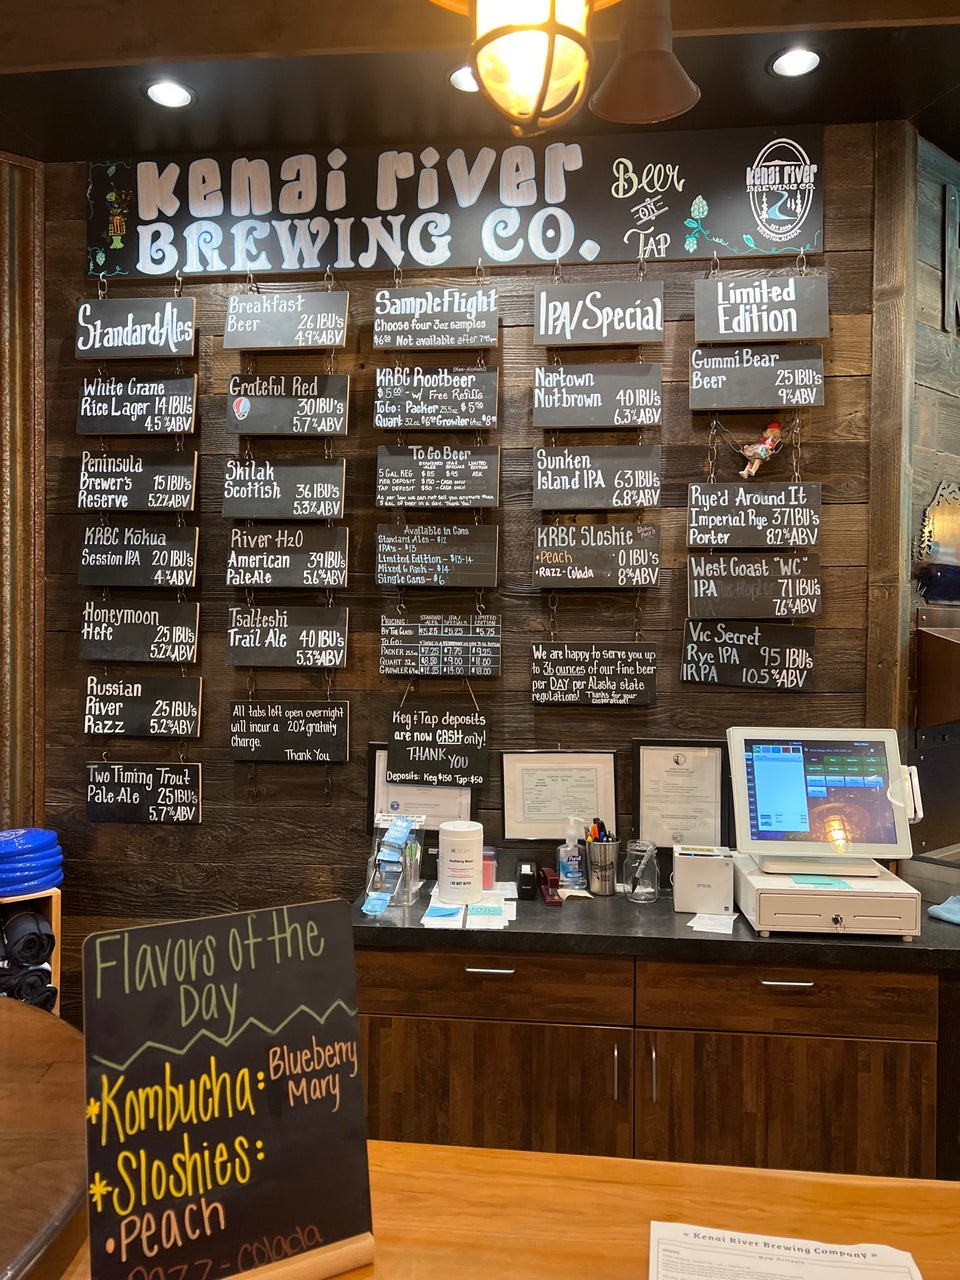 Kenai river
BREWING CO.
Beer
on
TAP
Kenai river
BREWING CO.
Standard Ales
White Crane
Rice Lager 14 IBU's
4.5 %ABV
Peninsula
Brewer's 15 IBU's
Reserve 5.2%ABV
KRBC Kōkua
Session IPA 20 IBU's
4%ABV
Honeymoon
Hefe 25 IBU's
5.2%ABV
Russian
River 25 IBU's
Razz 5.2%ABV
Two Timing Trout
Pale Ale 25 IBU's
5.7%ABV
Breakfast
Beer 26 IBU's
4.9%ABV
Grateful Red
30 IBU's
5.7%ABV
Skilak
Scottish 36 IBU's
5.3%ABV
River H2O
American 39 IBU's
Pale Ale 5.6%ABV
Tsalteshi
Trail Ale 40 IBU's
5.3%ABV
All tabs left open overnight
will incur a 20% gratuity
charge.
Thank You
Sample Flight
Choose four 3oz samples
Not available after
KRBC Rootbeer
$5.00 - w/ Free Refills
To Go: Packer 25.5oz $5.50
Quart 32oz Growler 64oz
To Go Beer
STANDARD ALES IPA/SPECIALS LIMITED EDITION
5 GAL KEG $85 $95 ASK
KEG DEPOSIT $150 - CASH ONLY
TAP DEPOSIT $50 - CASH ONLY
As per law we can not sell you anymore than
5 GAL of beer in a day. Thank You!
Available in Cans
Standard Ales - $12
IPA's - $13
Limited Edition - $13-14
Mixed 6 pack - $14
Single Cans - $6
PRICING: STANDARD ALES IPA/SPECIALS LIMITED EDITION
BY THE GLASS $5.25 $5.25 $5.75
TO GO:
PACKER $7.25 $7.75 $9.25
QUART 32oz $8.50 $9.00 $11.00
GROWLER 64oz
Keg & Tap deposits
are now CASH only!
THANK YOU
Deposits: Keg $150 Tap: $50
IPA/Special
Naptown
Nutbrown 40 IBU's
6.3%ABV
Sunken
Island IPA 63 IBU's
6.8%ABV
KRBC Sloshie
•Peach 0 IBU's
•Razz-Colada 8%ABV
We are happy to serve you up
to 36 ounces of our fine beer
per DAY per Alaska state
regulations! Thanks for your
cooperation!
Limited
Edition
Gummi Bear
Beer 25 IBU's
9%ABV
Rye'd Around It
Imperial Rye 37 IBU's
Porter 8.2%ABV
West Coast "WC"
IPA 71 IBU's
7.6%ABV
Vic Secret
Rye IPA 95 IBU's
IRPA 10.5%ABV
EPSON
Flavors of the
Day
*Kombucha: Blueberry
Mary
*Sloshies:
•Peach
Razz-Colada
« Kenai River Brewing Company »
New Arrivals